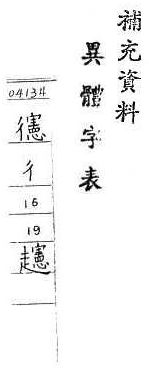 補充資料
異體字表
04134
彳
16
19